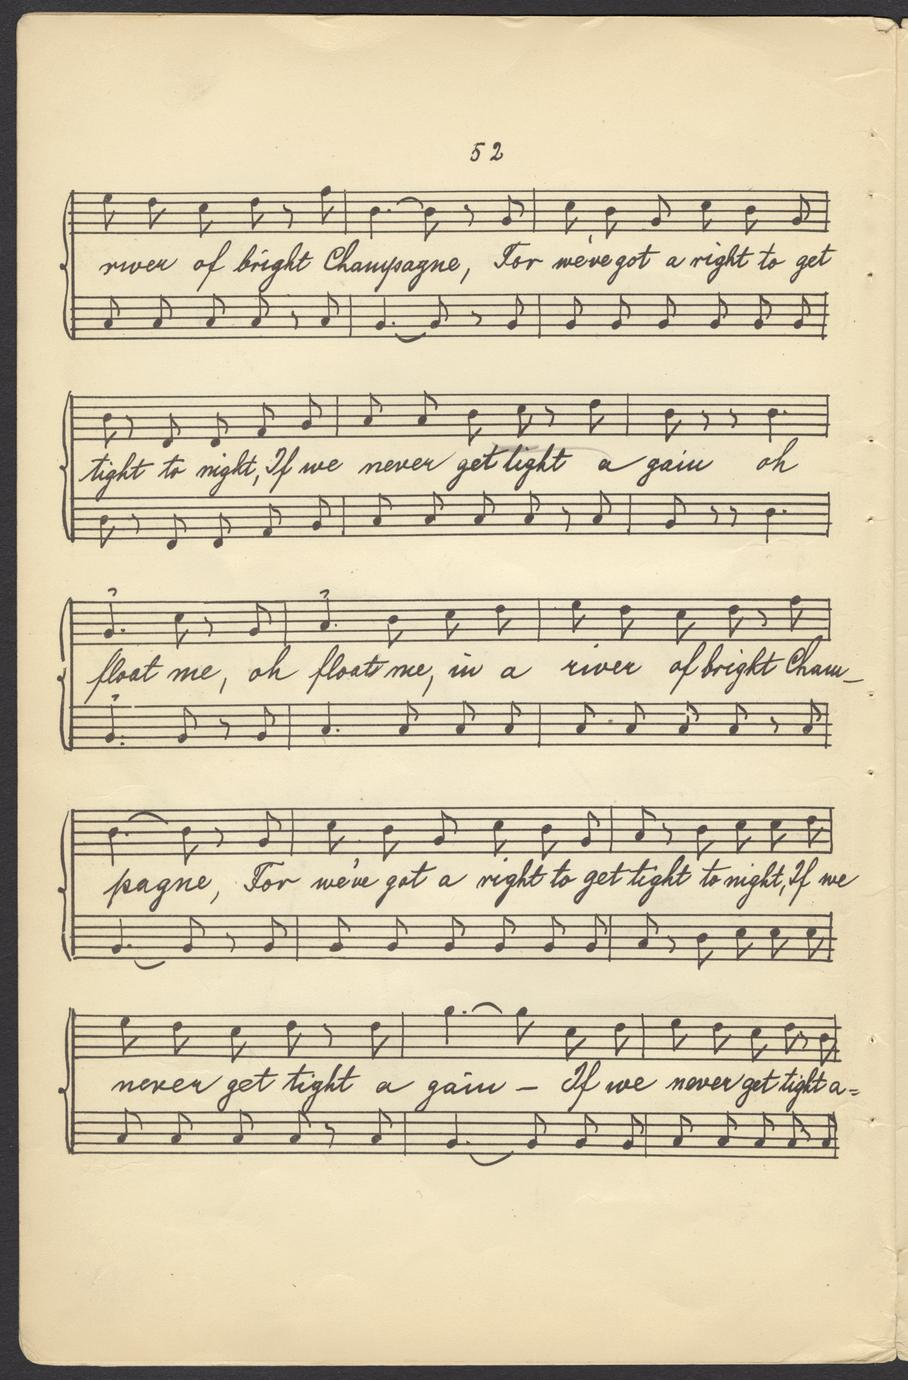 52
river of bright Champagne, For we've got a right to get
tight to night, If we never get tight a gain oh
float me, oh float me, in a river of bright Cham-
pagne, For we've got a right to get tight to night, If we
never get tight a gain - If we never get tight a=